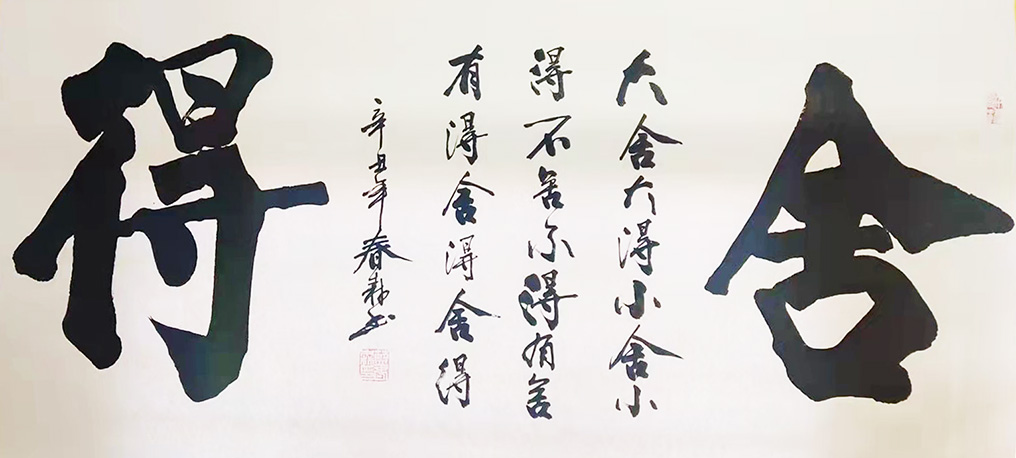 舍
大舍大得小舍小
得不舍不得有舍
有得舍得舍得
辛丑年春森书
得